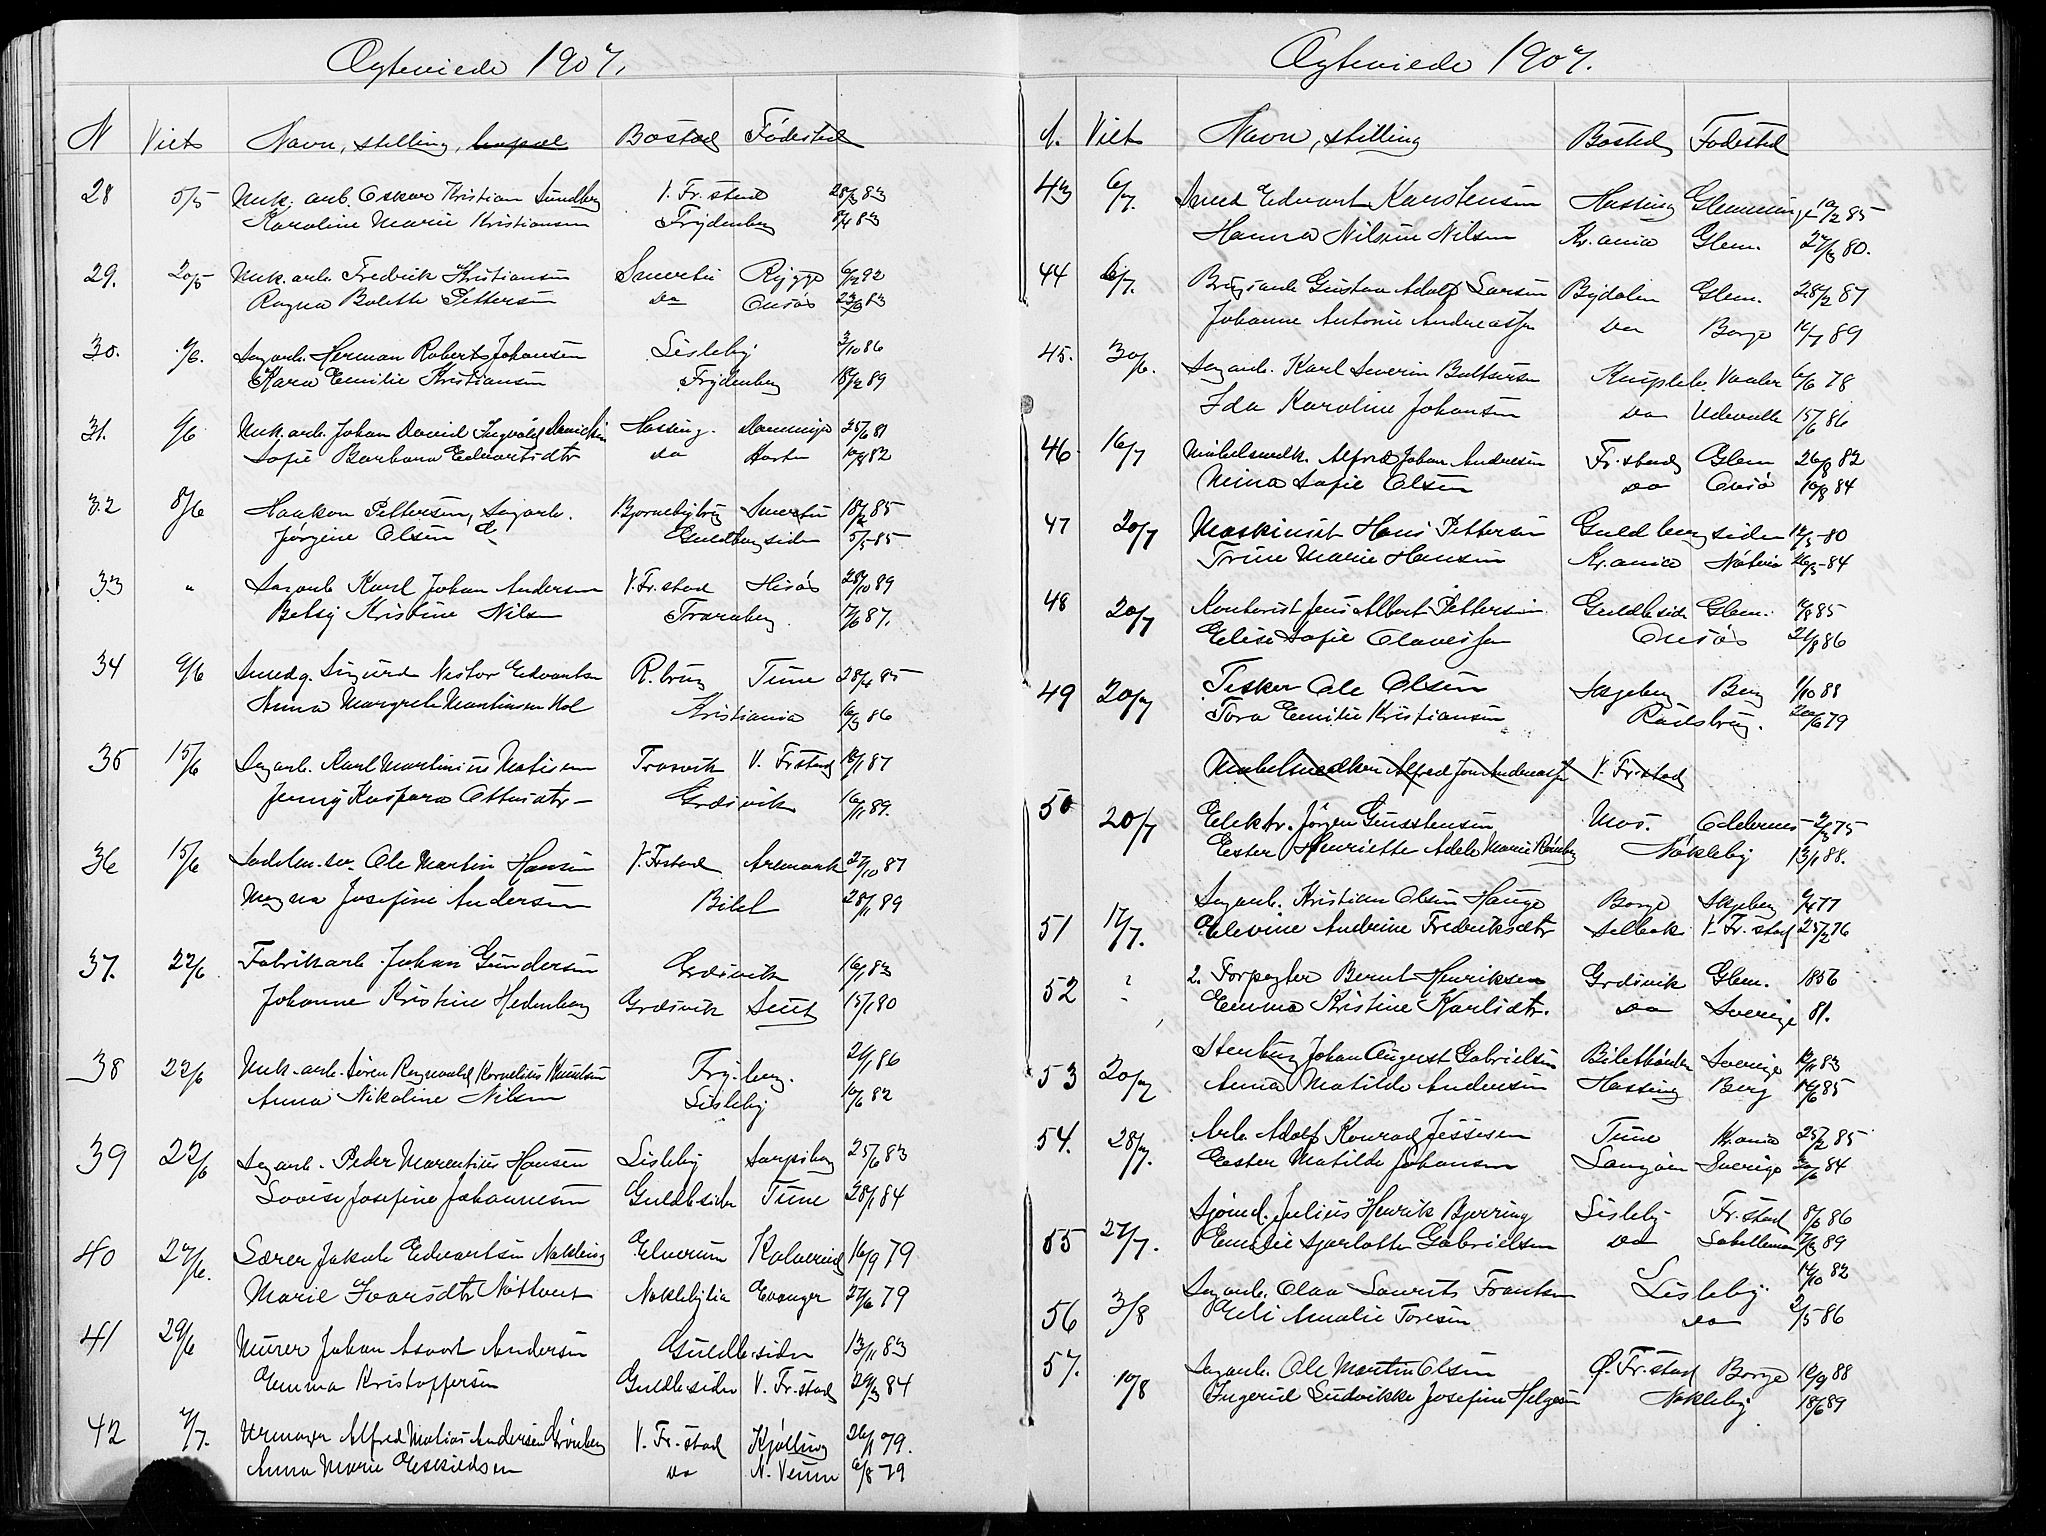 Ægteviede 1907.
N Viet Navn, stilling, Bosted Födested
28 5/5 Murk. arb. Oskar Kristian Sundberg V. Fr.stad 28/3 83
Karoline Marie Kristiansen Frydenberg 8/4 83
29. 20/5 Murk. arb. Fredrik Kristiansen Smertu Rygge 92
Ragna Bolette Pettersen do Onsö 23/9 83
30. 9/6. Sagarb. Herman Roberts Johansen Lisleby 3/10 86
Kara Emilie Kristiansen Frydenberg 18/2 89
31. 9/6 Murk. arb. Johan David Ingvald Hassing. 25/6 81
Sofie Barbara Edvartsdtr do 82
32 8/6 Haakon Pettersen, Sagarb. Bjørnebybrug Smertu 18/2 85
Jørgine Olsen Guldbergsiden 5/5-85
33 " Sagarb Karl Johan Andersen V. Fr.stad Hisö 28/10 89
Betsy Kristine Nilsen Traraberg. 87.
34 9/6 Smedg. Sigurd Nestor Edvartsen R. brug Tune 28/4 85
Anna Margrete Martinsen Hol Kristiania 16/3 86
35 15/6 Sagarb. Karl Martinius Matisen Trosvik V. Frstad 12/1 87
Jenny Kaspara Ottersdtr - Gresvik 16/11 89.
36 15/6 Ole Martin Hansen V. Frstad Aremark 27/10 87
Magna Josefine Andersen Bilet 28/1 89
37. 22/6 Fabrikarb. Johan Gundersen Gresvik 83
Johanne Kristine Hedenberg Gresvik Seut 15/1 80
38 22/6 Murk. arb. Søren Ragnvald Kornelius Knutsen Fry.berg. 21/1 86
Anna Nikoline Nilsen Lisleby 10/6 82
39 22/6 Sagarb. Peder Marentius Hansen Lisleby Sarpsborg 25/6 83
Lovise Josefine Johannesen Guldb.siden Tune 28/1 84
40 27/6. Lærer Jakob Edvartsen Nøkleby Elverum Kolvereid 16/9 79
Marie Ivarsdtr Nøtlvert Nøkleby lia Evanger 27/6 79
41 29/6 Murer Johan Asvort Andersen Guldb.siden 13/11 83
Emma Kristoffersen Guldb.siden V. Fr.stad 29/3 84
42 7/7. Urmager Alfred Matias Andersen Grönberg V. Fr.stad Kjølberg 26/1 79.
Anna Marie Eskildsen do N. Verum 6/8 79
Ægteviede 1907.
N. Viet Navn, stilling Bosted Fødested
43 6/7. Smed Edvart Karstensen Hassing Glemminge 10/2 85
Hanna Nilsine Nilsen Kr.ania Glem. 27/3 80.
44 6/7. Brugsarb Gustav Adolf Larsen Bydalen Glem. 28/2 87
Johanne Antonie Andreassen do Borge 89
45. 30/6. Sagarb. Karl Severin Baltsersen Kniplek. Vaaler 6/6 78
Ida Karoline Johansen do Udevalla 15/6 86
46 16/7 Møbelsnedk. Alfred Johan Andresen Fr.stad Glem 26/8 82
Mina Sofie Olsen do Onsö 10/8 84
47 20/7 Maskinist Hans Pettersen Guldbergsiden 12/5-80
Trine Marie Hansen Kr.ania Nöterö 26/5-84
48 20/7 Kontorist Jens Albert Pettersen Guldb.side Glem. 85
Elise Sofie Olavesen Onsö 21/8 86
49 20/7 Fisker Ole Olsen Sageberg Berg 1/10 88
Tora Emilie Kristiansen Raasbrug. 20/6 79
Møbelsnedker Alfred Joh Andreassen V. Fr.stad
50 20/7 Elektr. Jørgen Gusstensen Mos. Oddernes 75
Ester Henriette Adele Marie Rønberg Nökleby 13/1 88.
51 17/7. Sagarb. Kristian Olsen Hauge Borge Sageberg 77
Elevine Andrine Fredriksdtr Selbak V. Fr.stad 25/2 76
52 2. Forpagter Bernt Henriksen Gresvik Glem. 1856
Emma Kristine Karlsdtr. do Sverige 81.
53 20/7 Stenhug Johan August Gabrielsen Bilethånden Sverige 12/11 83
Anna Matilde Andersen Hassing Berg 14/6 85
54. 28/7. Arb. Adolf Konrad Jessesen Tune Kr.ania 25/2 85
Ester Matilde Johansen Langöen Sverige 20/6 84
55 27/7. Sjömd. Julius Henrik Bjerring Lisleby Fr.stad 8/6 86
Emilie Sjarlotte Gabrielsen do 89
56 3/8 Sagarb. Olav Laurits Frantsen Lisleby. 14/10 82
Eli Amalie Toresen do 2/5 86
57. 10/8 Sagarb. Ole Martin Olsen Ø. Fr.stad Borge 12/9 88
Ingerid Ludvikke Josefine Helgesen Nøkleby 18/6 89